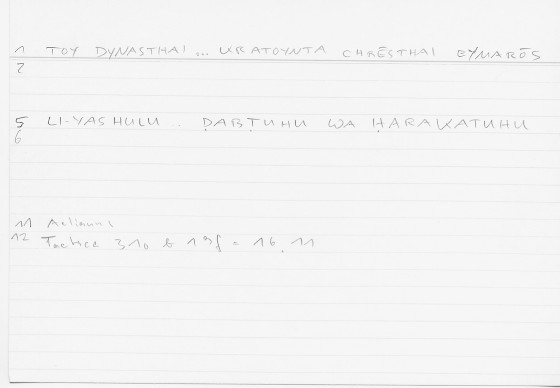 1 TOY DYNASTHAI ... KRATOYNTA CHRĒSTHAI EYMARŌS
2
5 LI-YASHULU . ḌABṬUHU WA ḤARAKATUHU
6
11 Aelianus
12 Tactica 310 b 19f = 16.11